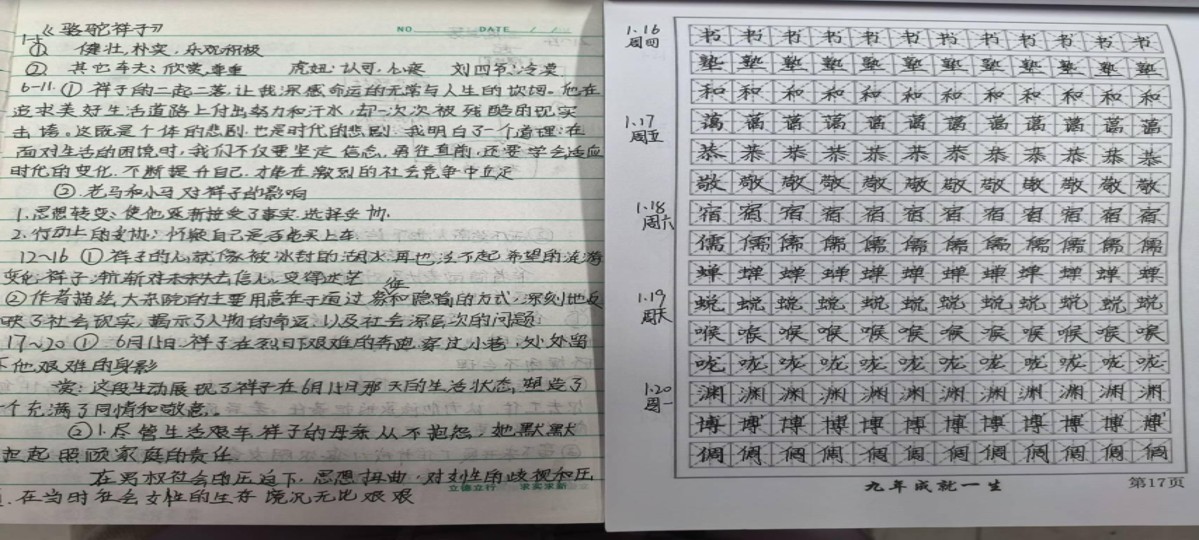 《骆驼祥子》
NO. DATE / /
1-5
① 健壮,朴实,乐观积极
② 其它车夫:欣赏,尊重 虎妞:认可,心疼 刘四爷:冷漠
6-11.① 祥子的二起二落,让我深感命运的无常与人生的坎坷。他在
追求美好生活道路上付出努力和汗水,却一次次被残酷的现实
击垮。这既是个体的悲剧,也是时代的悲剧。我明白了一个道理:在
面对生活的困境时,我们不仅要坚定信念,勇往直前,还要学会适应
时代的变化,不断提升自己,才能在激烈的社会竞争中立足
② 老马和小马对祥子的影响
1.思想转变:使他逐渐接受了事实,选择妥协.
2.行动上的妥协:怀疑自己是否能买上车.
12~16 ①祥子的心就像被冰封的湖水再也泛不起希望的涟漪
变化祥子渐渐对未来失去信心,变得迷茫
②作者描述大杂院的主要用意在于通过象征和隐喻的方式,深刻地反
映了社会现实,揭示了人物的命运,以及社会深层次的问题
17~20 ① 6月15日,祥子在烈日下艰难的奔跑穿过小巷,处处留
下他艰难的身影
赏:这段生动展现了祥子在6月15日那天的生活状态,塑造了
个充满了同情和敬意。
②1.尽管生活艰辛,祥子的母亲从不抱怨,她默默
担起照顾家庭的责任
在男权社会的压迫下,思想扭曲,对女性的歧视和压
在当时社会女性的生存境况无比艰艰
立德立行 求实求新
1.16
周四
书书书书书书书书书书书书
塾塾塾塾塾塾塾塾塾塾塾塾
和和和和和和和和和和和和
1.17
周五
蔼蔼蔼蔼蔼蔼蔼蔼蔼蔼蔼蔼
恭恭恭恭恭恭恭恭恭恭恭恭
敬敬敬敬敬敬敬敬敬敬敬敬
1.18
周六
宿宿宿宿宿宿宿宿宿宿宿宿
儒儒儒儒儒儒儒儒儒儒儒儒
蝉蝉蝉蝉蝉蝉蝉蝉蝉蝉蝉蝉
1.19
周天
蜕蜕蜕蜕蜕蜕蜕蜕蜕蜕蜕蜕
喉喉喉喉喉喉喉喉喉喉喉喉
咙咙咙咙咙咙咙咙咙咙咙咙
1.20
周一
渊渊渊渊渊渊渊渊渊渊渊渊
博博博博博博博博博博博博
倜倜倜倜倜倜倜倜倜倜倜倜
九年成就一生
第17页